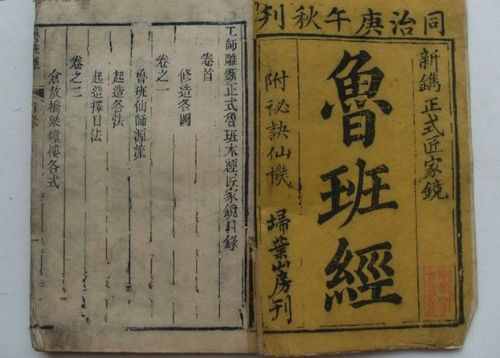 同治庚午秋刊
新鐫正式匠家鏡
魯班經
附祕訣仙機
掃葉山房刊
工師雕斵正式魯班木經匠家鏡目錄
卷首
修造各圖
卷之一
魯班仙師源流
起造各法
起造擇日法
卷之二
倉敖橋梁鐘樓各式